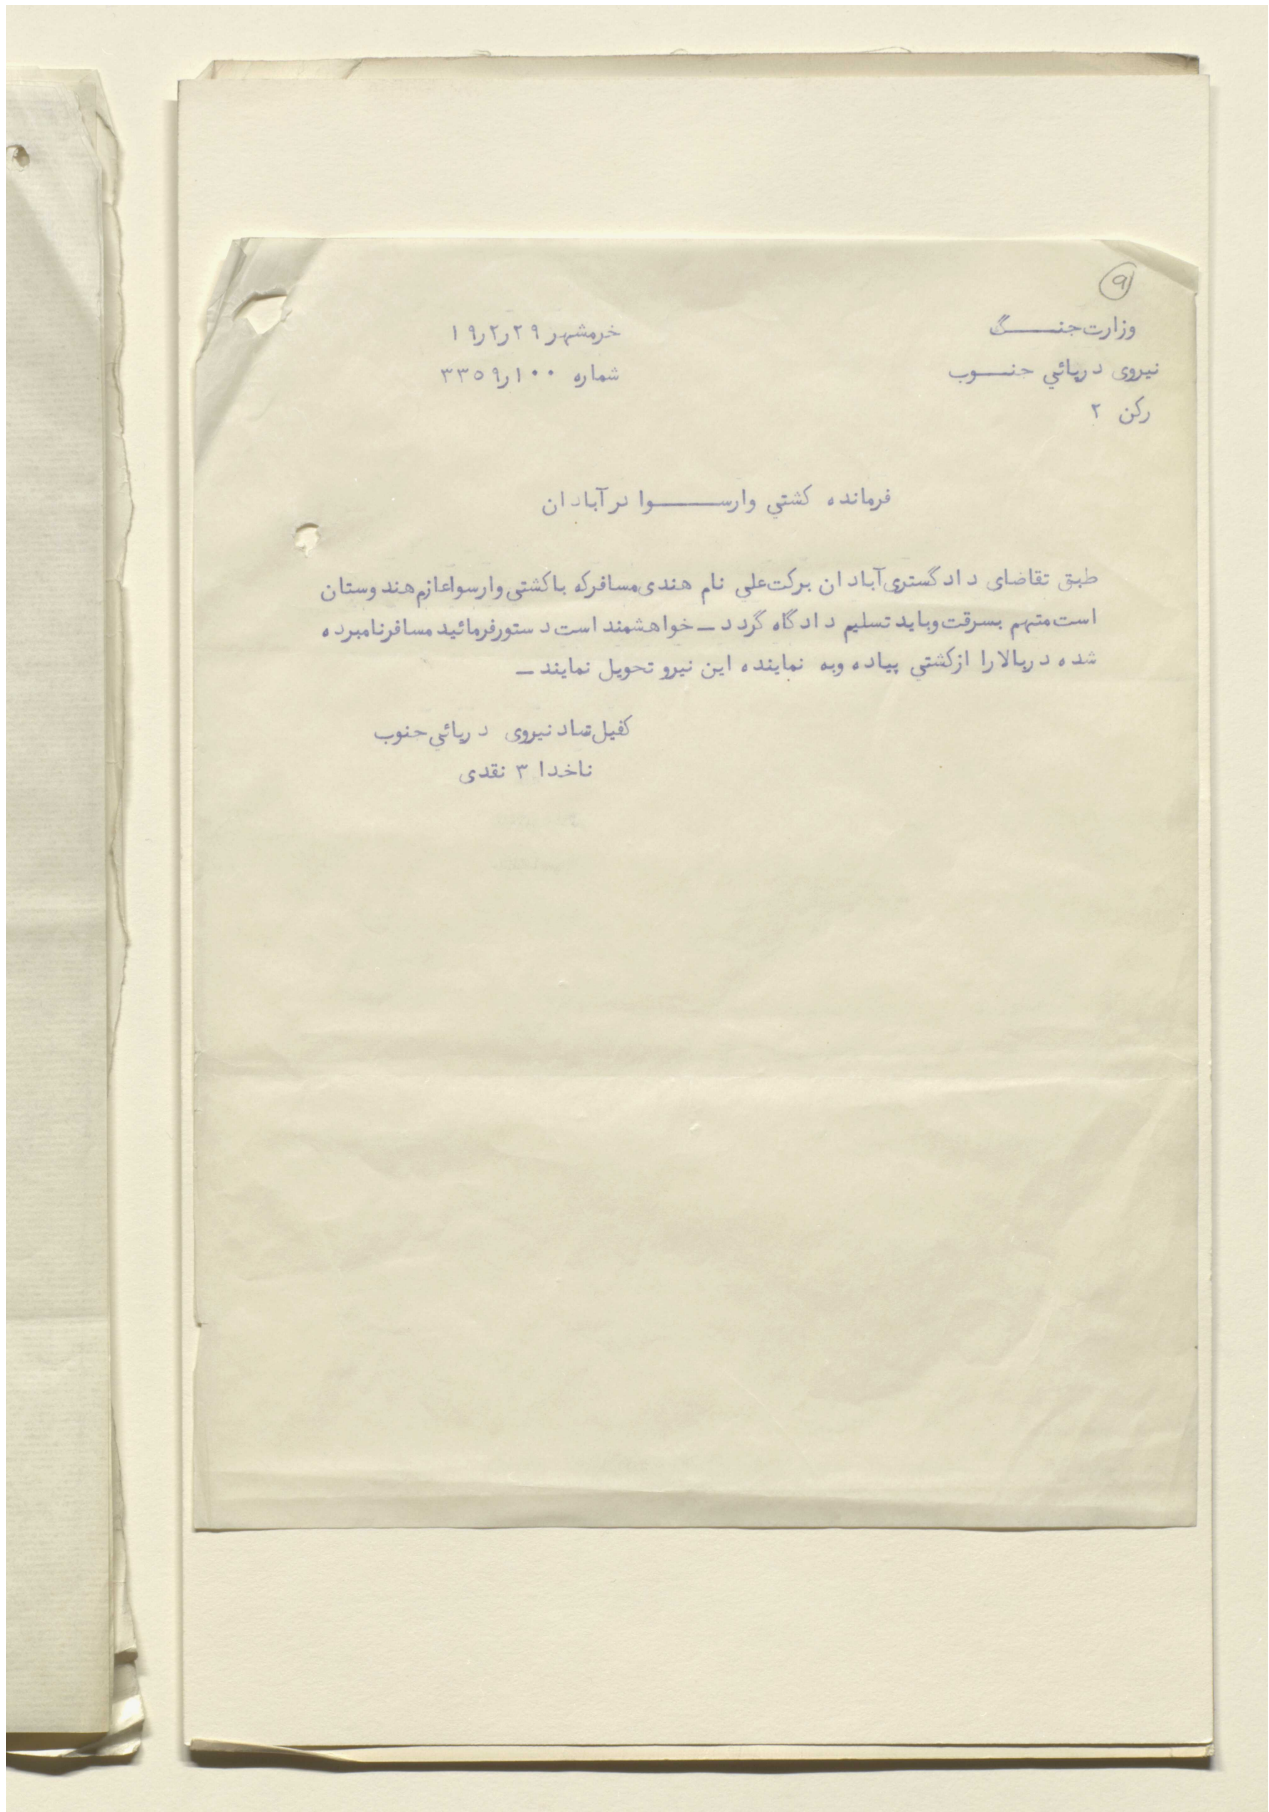 9
وزارت جنـــگ
خرمشهر ۱۹ر۲ر۲۹
نیروی دریائي جنـــوب
شماره ۳۳۵۹ر۱۰۰
رکن ۲
فرمانده کشتي وارســـوا در آبادان
طبق تقاضای دادگستری آبادان برکت علی نام هندی مسافر که با کشتی وارسوا عازم هندوستان
است متهم بسرقت و باید تسلیم دادگاه گردد ــ خواهشمند است دستور فرمائید مسافر نامبرده
شده در بالا را از کشتي پیاده و به نماینده این نیرو تحویل نمایند ــ
کفیل ستاد نیروی دریائي جنوب
ناخدا ۳ نقدی